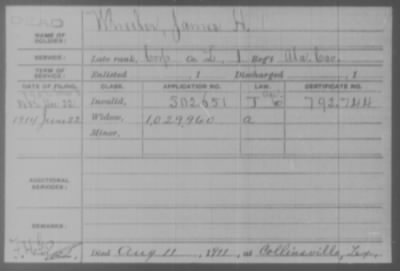 DEAD
NAME OF SOLDIER: Wheeler, James H.
SERVICE: Late rank, Corp Co. L, 1 Reg't Ala. Cav.
TERM OF SERVICE: Enlisted , 1 Discharged , 1
DATE OF FILING. CLASS. APPLICATION NO. LAW. CERTIFICATE NO.
22 Invalid, 502.651 J 792.744
1914 June 22 Widow, 1,029,960 a
Minor,
ADDITIONAL SERVICES:
REMARKS:
Died Aug 11, 1911, at Collinsville, Tex.